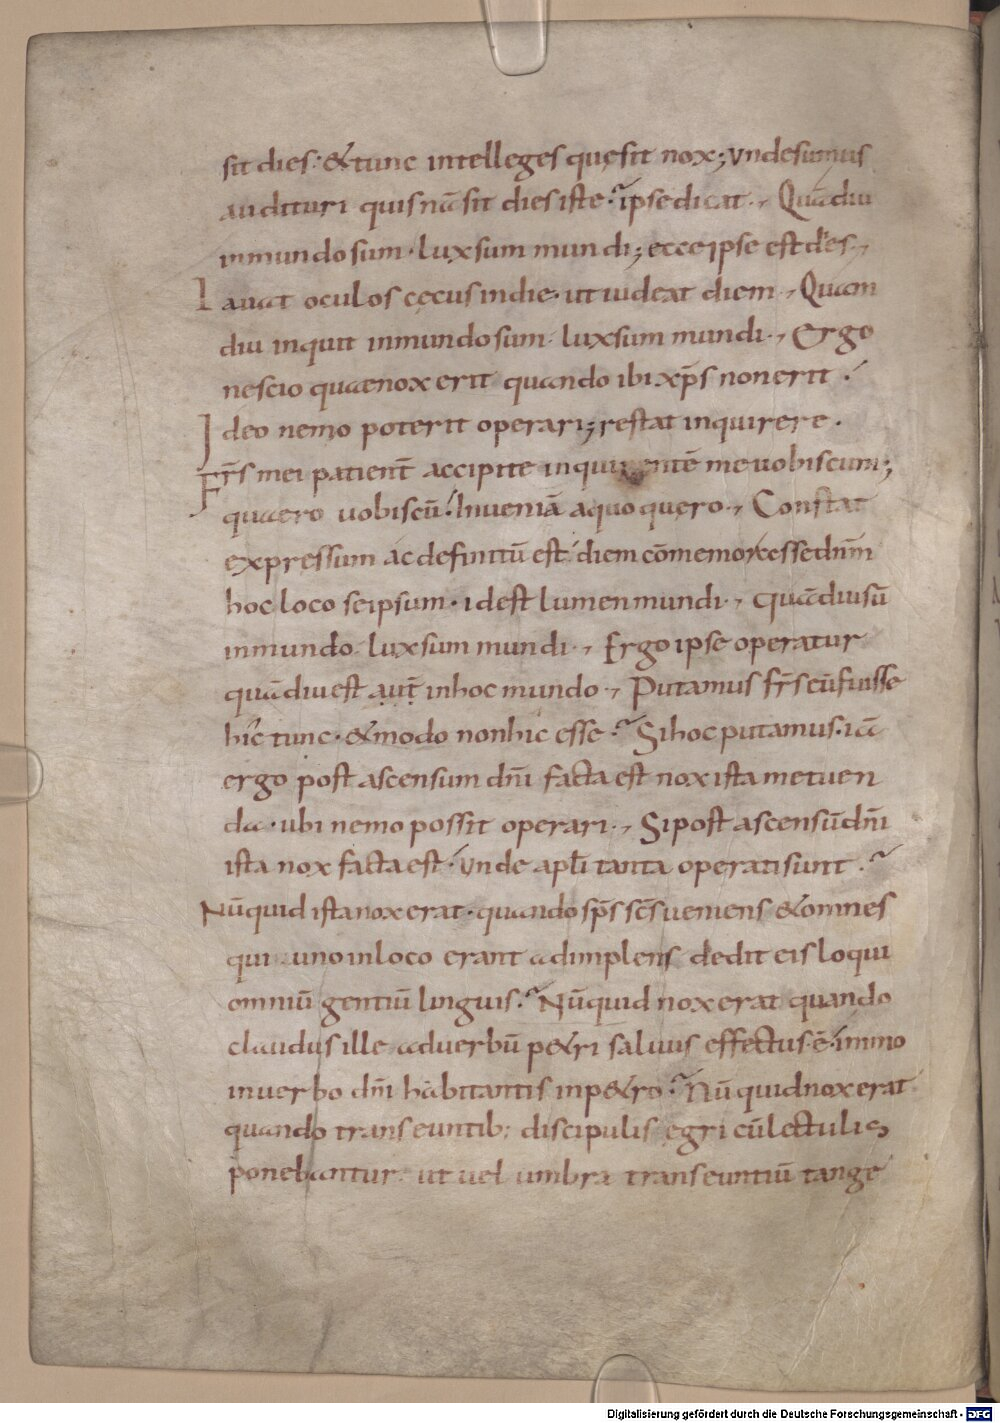 sit dies· & tunc intelleges quę sit nox; Unde sumus
audituri quis nā sit dies iste· ipse dicat·, Quādiu
in mundo sum· lux sum mundi; ecce ipse est dies·,
Lauat oculos cęcus in die· ut uideat diem·, Quam
diu inquit in mundo sum· lux sum mundi·, Ergo
nescio quae nox erit quando ibi xp̄s non erit·
Ideo nemo poterit operari; restat inquirere·
Fr̄s mei patient̄ accipite inquirentē me uobiscum;
quaero uobiscū· Inueniā a quo quęro·, Constat
expressum ac definitū est· diem cōmemorasse dn̄m
hoc loco se ipsum· id est lumen mundi·, quādiu sū
in mundo· lux sum mundi·, Ergo ipse operatur
quādiu est aut̄ in hoc mundo·, Putamus fr̄s eū fuisse
hic tunc· & modo non hic esse· Si hoc putamus· iā
ergo post ascensum dn̄i facta est nox ista metuen
da· ubi nemo possit operari·, Si post ascensū dn̄i
ista nox facta est· Unde apl̄i tanta operati sunt·
Nūquid ista nox erat· quando sp̄s sc̄s ueniens & omnes
qui uno in loco erant adimplens dedit eis loqui
omniū gentiū linguis· Nūquid nox erat quando
claudus ille ad uerbū p&ri saluus effectus ē· immo
in uerbo dn̄i habitantis in p&ro· Nūquid nox erat
quando transeuntib; discipulis egri cū lectulis
ponebantur· ut uel umbra transeuntiū tange
Digitalisierung gefördert durch die Deutsche Forschungsgemeinschaft - DFG